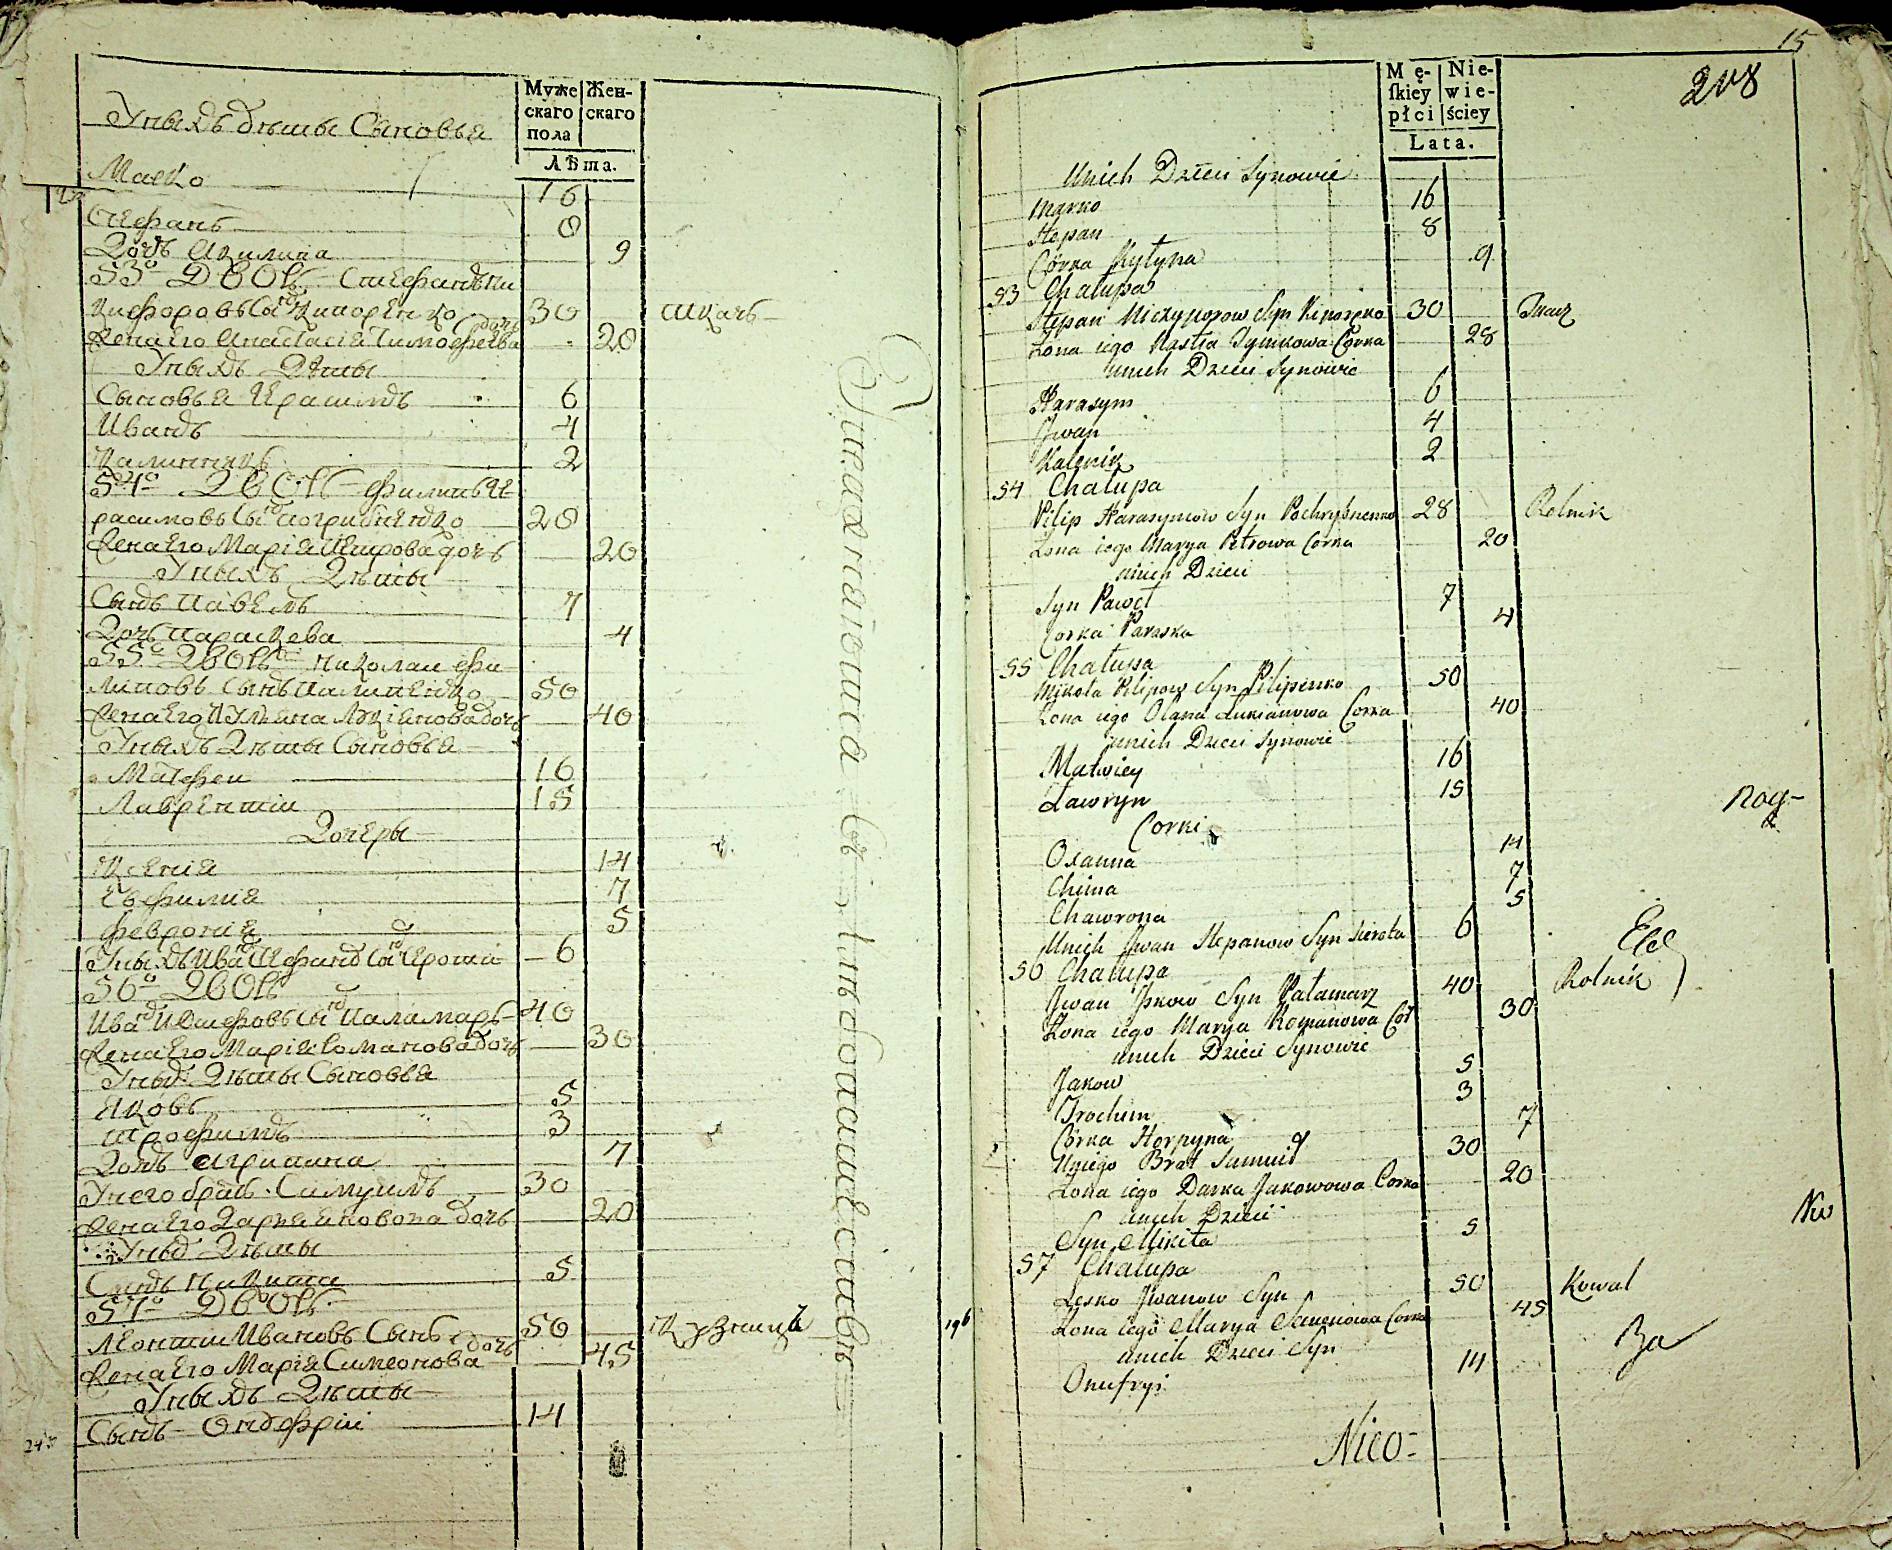 Муже
скаго
пола
Жен-
скаго
Лѣта.
У ныхъ дѣты Сыновья
Марко 16
Стефанъ 8
Дочь Акилина 9
53о Дворъ Стефанъ Ни
кифоровъ Сынъ Кипоренко 30 ткачь
Жена Его Анастасія Тимофеева дочь 28
У ныхъ Дѣты
Сыновья Герасимъ 6
Иванъ 4
Калинникъ 2
54о Дворъ Филипъ Ге-
расимовъ Сынъ Погрибненко 28
Жена Его Марія Петрова дочь 20
У ныхъ Дѣты
Сынъ Павелъ 7
Дочь Параскева 4
55о Дворъ Николай Фи-
липовъ Сынъ Пилипенко 50
Жена Его Улѣяна Лукіянова дочь 40
У ныхъ Дѣты Сыновья
Матфеи 16
Лаврентіи 15
Дочеры
Ксенія 14
Евфимія 7
Феврониѧ 5
У ныхъ Иванъ Стефановъ Сынъ Сирота 6
56о Дворъ
Иванъ Иосифовъ Сынъ Паламарь 40
Жена Его Марія Романова дочь 30
У ныхъ Дѣты Сыновья
Яковъ 5
Трофимъ 3
Дочь Агрипина 7
У него братъ Самуилъ 30
Жена Его Дарія Яковова дочь 20
У ныхъ Дѣты
Сынъ Никита 5
57о Дворъ
Леонтіи Ивановъ Сынъ 50 Кузнецъ
Жена Его Марія Симеонова дочь 45
У ныхъ Дѣты
Сынъ Онуфріи 14
15
208
Mę-
ſkiey
płci
Nie-
wie-
ściey
Lata.
Unich Dzieci Synowie
Marko 16
Stepan 8
Corka Kylyna 9
53 Chałupa
Stepan Niczyporow Syn Kiporenko 30 Tkacz
Zona iego Nastia Tymkowa Corka 28
unich Dzieci Synowie
Harasym 6
Jwan 4
Kalenik 2
54 Chałupa
Pilip Harasymow Syn Pochrybnenko 28 Rolnik
Zona iego Marya Petrowa Corka 20
unich Dzieci
Syn Paweł 7
Corka Paraska 4
55 Chałupa
Mikoła Pilipow Syn Pilipenko 50
Zona iego Olana Lukianowa Corka 40
unich Dzieci Synowie
Matwiey 16
Ławryn 15
Corki
Oxanna 14
Chima 7
Chawrona 5
Unich Jwan Stepanow Syn Sierota 6
56 Chałupa
Jwan Jskow Syn Pałamarz 40 Rolnik
Zona iego Marya Romanowa Cor 30
unich Dzieci Synowie
Jakow 5
Trochim 3
Corka Horpyna 7
Uniego Brat Samuił 30
Zona iego Darka Jakowowa Corka 20
unich Dzieci
Syn Mikita 5
57 Chałupa
Lesko Jwanow Syn 50 Kowal
Zona iego Marya Semenowa Corka 45
unich Dzieci Syn
Onufryi 14
196